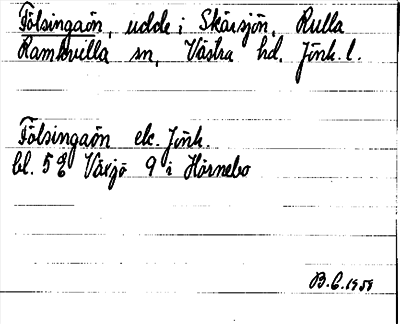 Fölsingaön, udde i Skärsjön, Rulla
Ramkvilla sn, Västra hd. Jönk. l.
Fölsingaön ek. Jönk.
bl. 5 Växjö 9 i Hörnebo
B. G. 1959